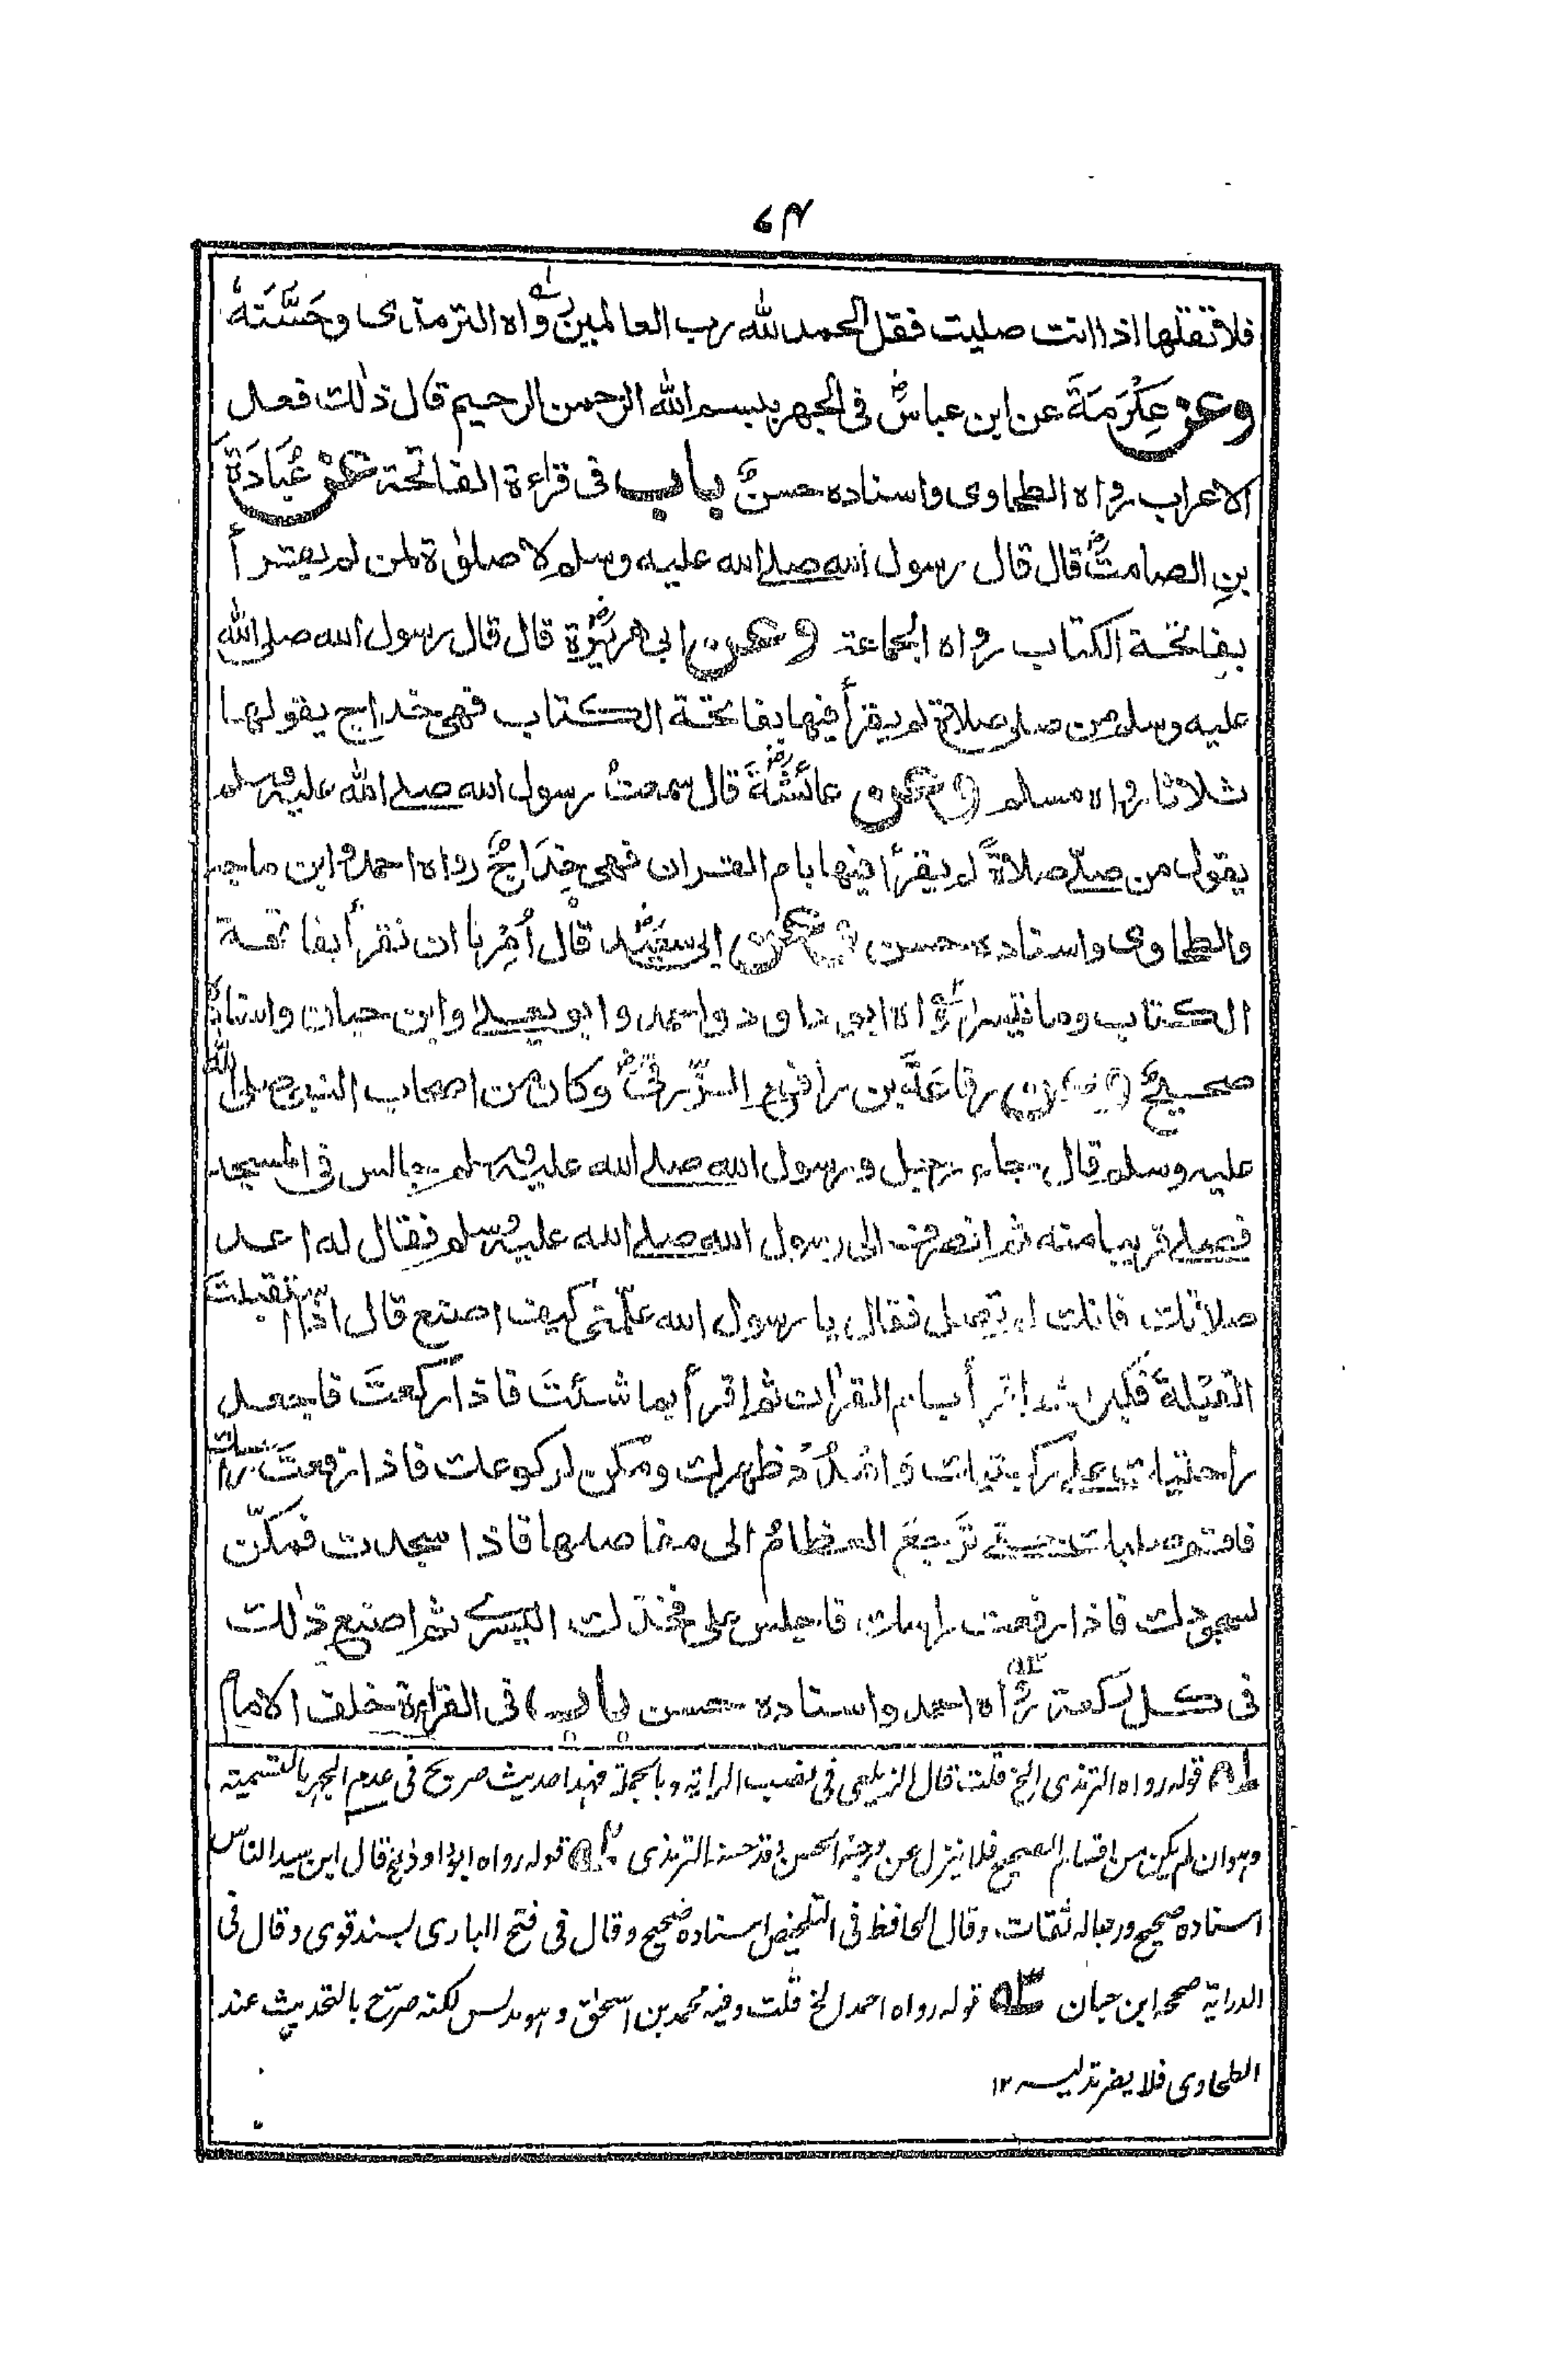 ۷۴
فلا تقلها اذا انت صليت فقل الحمد لله رب العالمين رواه الترمذى وحَسَّنَهٗ
وعن عِكْرَمَةَ عن ابن عباسؓ فى الجهر ببسم الله الرحمن الرحيم قال ذٰلك فعل
الاعراب رواه الطحاوى واسناده حسنٌ باب فى قراءة الفاتحة عن عُبَادَةَ
بنِ الصامتؓ قال قال رسول الله صلى الله عليه وسلم لا صلوٰة لمن لم يقرأ
بفاتحة الكتاب رواه الجماعة وعن ابى هريرةؓ قال قال رسول الله صلى الله
عليه وسلم من صلى صلاةً لم يقرأ فيها بفاتحة الكتاب فهى خداج يقولها
ثلاثا رواه مسلم وعن عائشةَؓ قال سمعتُ رسول الله صلى الله عليه وسلم
يقول من صلّى صلاةً لم يقرأ فيها بام القران فهى خِدَاجٌ رواه احمد وابن ماجه
والطحاوى واسناده حسن وعن ابى سعيدؓ قال اُمِرْنا ان نقرأ بفاتحة
الكتاب وما تيسر رواه ابو داود واحمد وابو يعلى وابن حبان واسناده
صحيحٌ وعن رفاعةَ بن رافع الزُّرقىؓ وكان من اصحاب النبى صلى الله
عليه وسلم قال جاء رجل ورسول الله صلى الله عليه وسلم جالس فى المسجد
فصلى قريبا منه ثم انصرف الى رسول الله صلى الله عليه وسلم فقال له اعد
صلاتك فانك لم تصل فقال يا رسول الله علّمنى كيف اصنع قال اذا استقبلتَ
القبلةَ فكبر ثم اقرأ بام القران ثم اقرأ بما شئتَ فاذا ركعتَ فاجعل
راحتيك على ركبتيك وَامْدُدْ ظهرك ومكن لركوعك فاذا رفعتَ رأسك
فاقم صلبك حتى تَرجعَ العظامُ الى مفاصلها فاذا سجدت فمكّن
لسجودك فاذا رفعت راسك فاجلس على فخذك اليسرى ثم اصنع ذٰلك
فى كل ركعة رواه احمد واسناده حسن باب فى القراءة خلف الامام
ـه۱ قوله رواه الترمذى الخ قلت قال الزيلعى فى نصب الراية وبالجملة فهذا حديث صريح فى عدم الجهر بالتسمية
وهو وان لم يكن من اقسام الصحيح فلا ينزل عن درجة الحسن وقد حسنه الترمذى ـه۲ قوله رواه ابو داود الخ قال ابن سيد الناس
اسناده صحيح ورجاله ثقات وقال الحافظ فى التلخيص اسناده صحيح وقال فى فتح البارى بسند قوى وقال فى
الدراية صححه ابن حبان ـه۳ قوله رواه احمد الخ قلت وفيه محمد بن اسحٰق وهو مدلس لكنه صرّح بالتحديث عند
الطحاوى فلا يضر تدليسه ۱۲